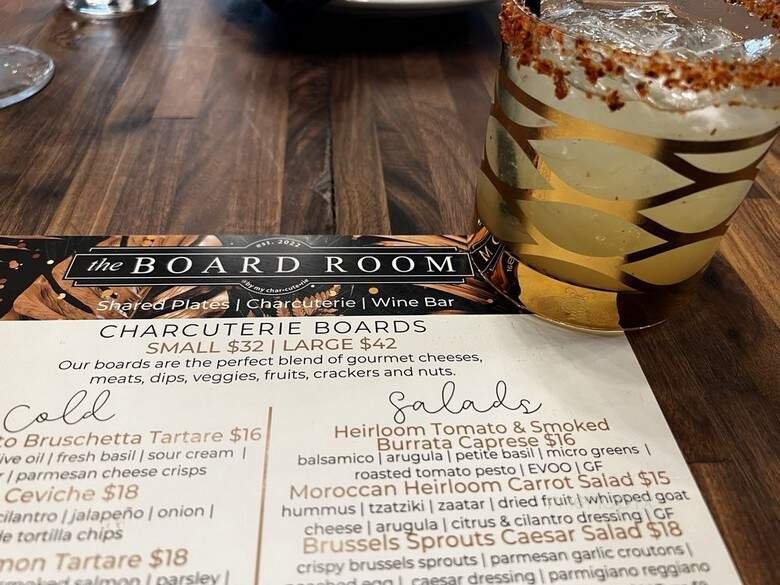 est. 2022
the BOARD ROOM
by my char-cute-rie
Shared Plates | Charcuterie | Wine Bar
CHARCUTERIE BOARDS
SMALL $32 | LARGE $42
Our boards are the perfect blend of gourmet cheeses,
meats, dips, veggies, fruits, crackers and nuts.
Cold
to Bruschetta Tartare $16
ive oil | fresh basil | sour cream |
r | parmesan cheese crisps
Ceviche $18
cilantro | jalapeño | onion |
le tortilla chips
mon Tartare $18
smoked salmon | parsley |
Salads
Heirloom Tomato & Smoked
Burrata Caprese $16
balsamico | arugula | petite basil | micro greens |
roasted tomato pesto | EVOO | GF
Moroccan Heirloom Carrot Salad $15
hummus | tzatziki | zaatar | dried fruit | whipped goat
cheese | arugula | citrus & cilantro dressing | GF
Brussels Sprouts Caesar Salad $18
crispy brussels sprouts | parmesan garlic croutons |
poached egg | caesar dressing | parmigiano reggiano